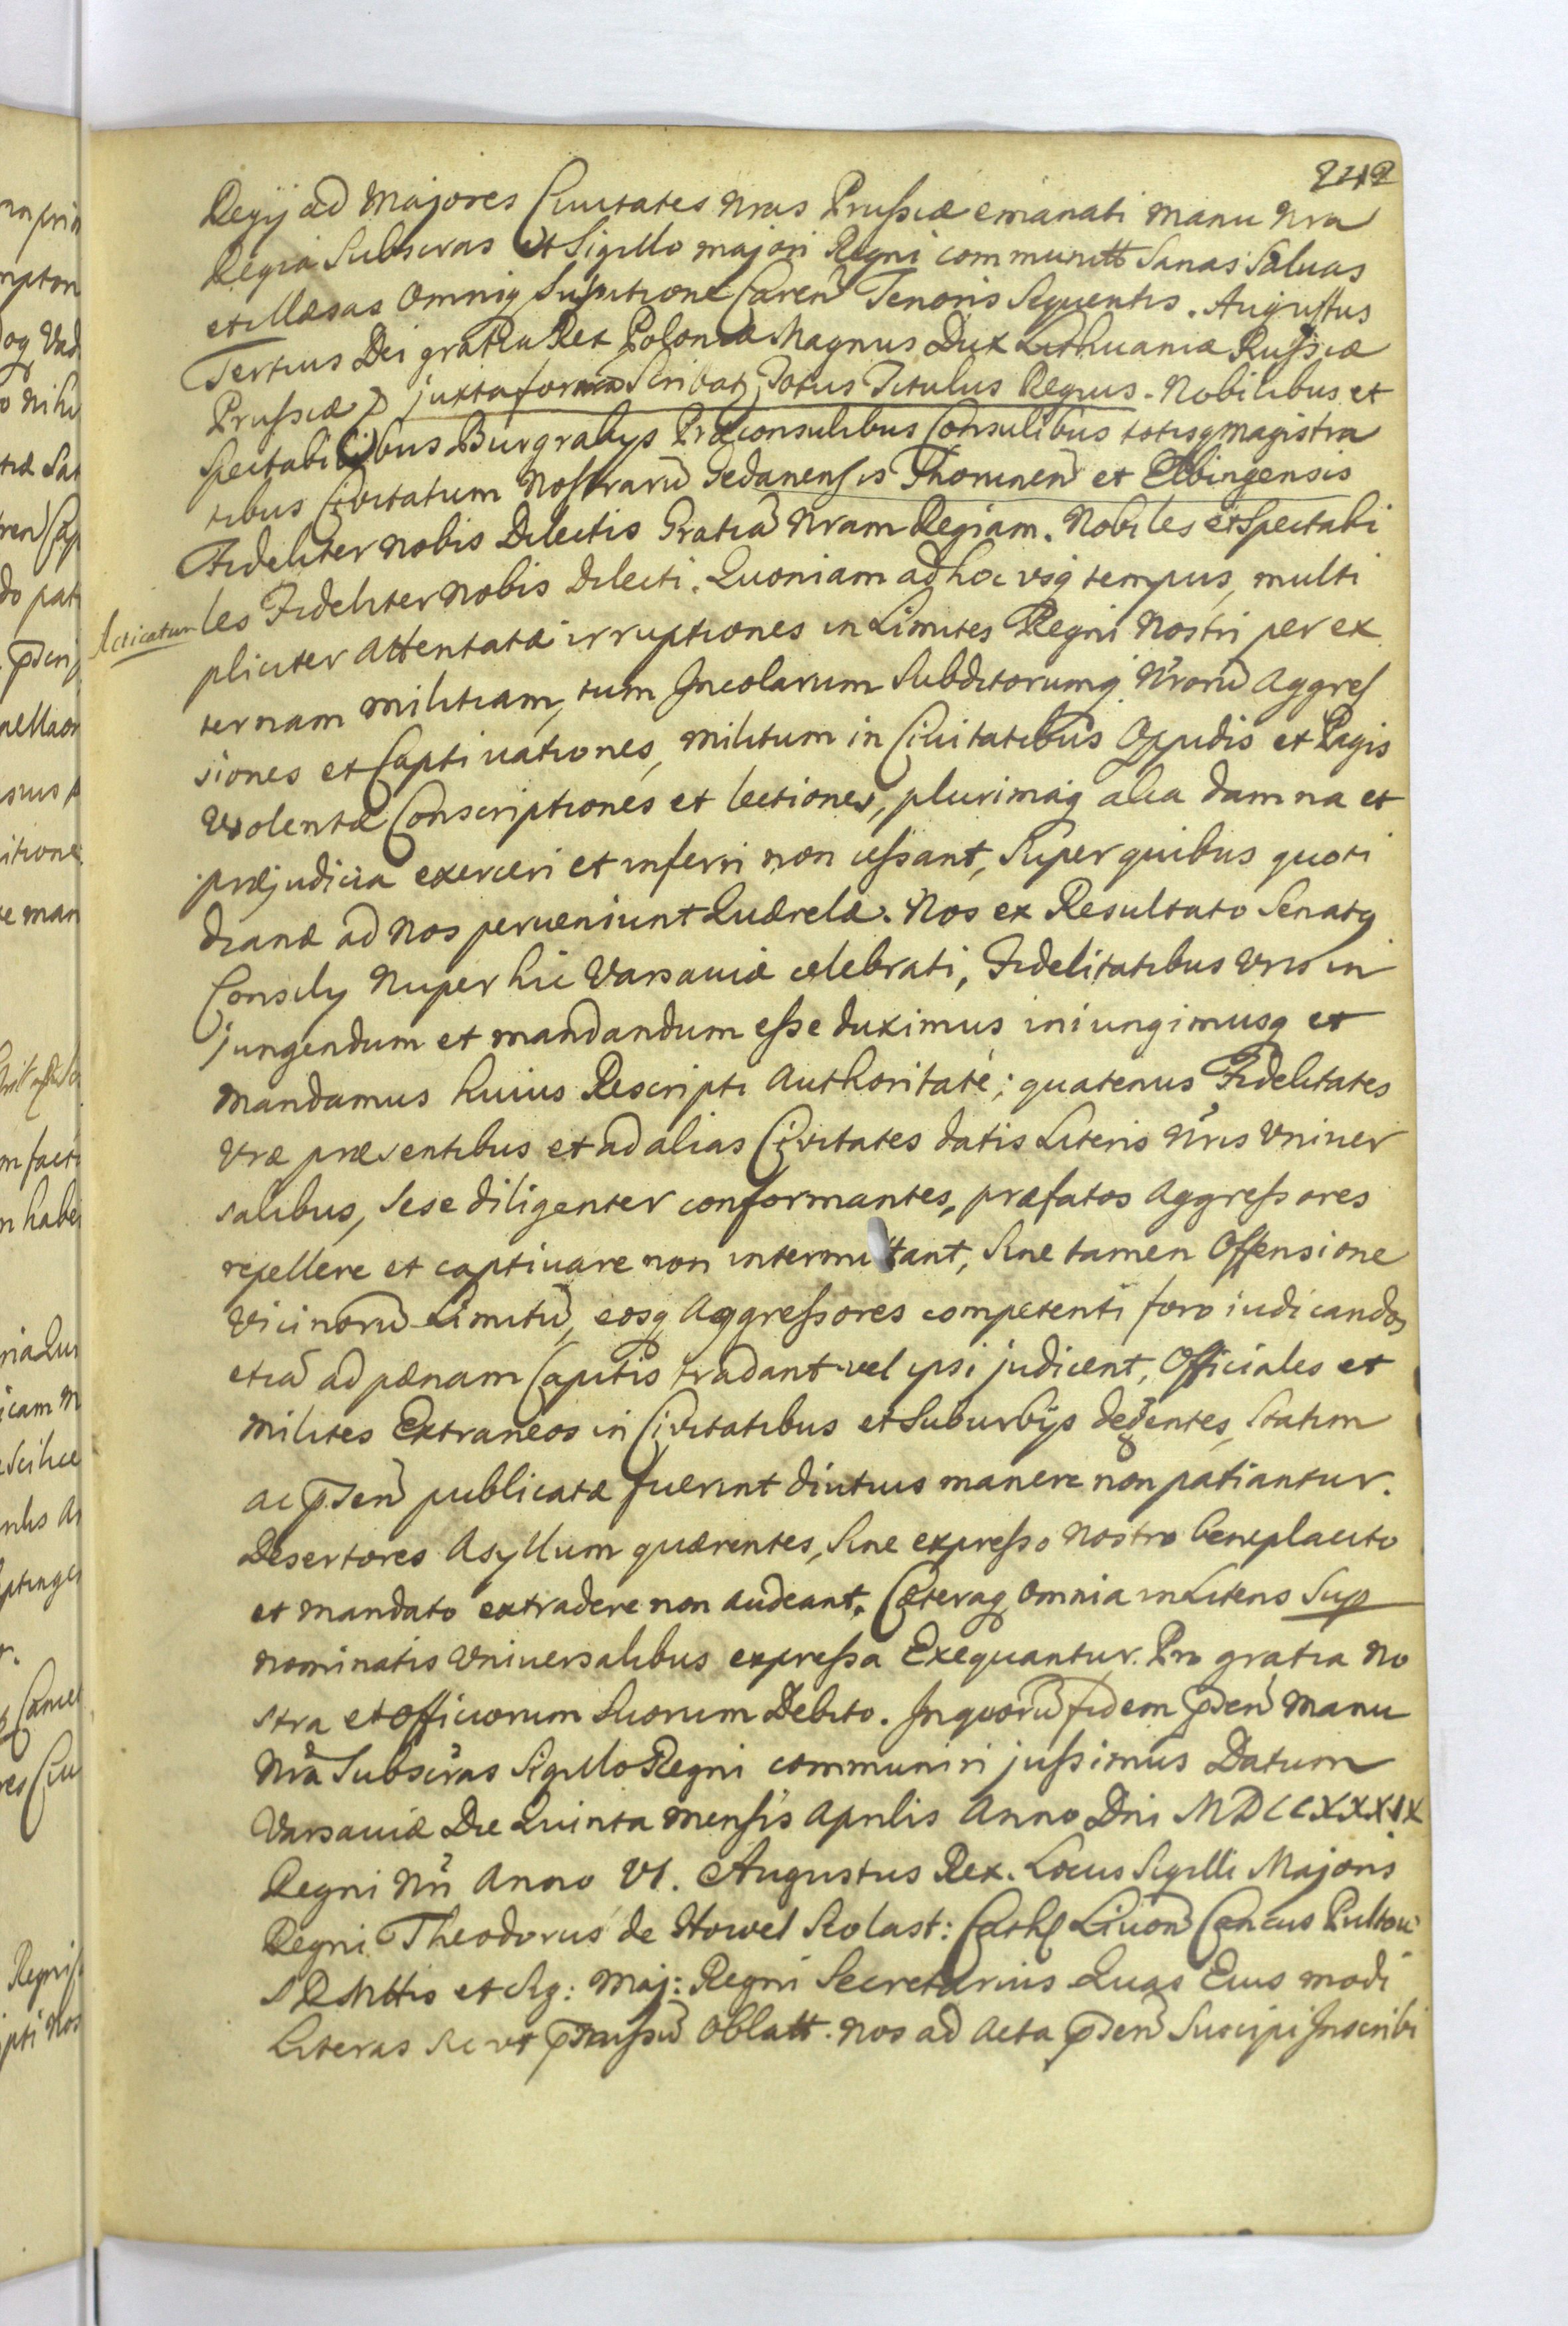 242
Regÿ ad Majores Ciuitates nras Prussiæ emanati manu nra
Regia Subscras et Sigillo majori Regni communitt Sanas Saluas
et illæsas Omniq Suspitione Caren Tenoris Sequentis. Augustus
Tertius Dei gratia Rex Poloniæ Magnus Dux Lithuaniæ Russiæ
Prussiæ juxta formã Scribatz Totus Titulus Regius. Nobilibus et
Spectabilibus Burgrabÿs Præconsulibus Consulibus totisq Magistra
tibus Civitatum Nostrarũ Gedanensis Thorunen et Elbingensis
Fideliter nobis Dilectis Gratiã nram Regiam. Nobiles et Spectabi
Acticatur les Fideliter nobis Dilecti. Quoniam ad hoc vsq tempus, multi
pliciter Attentatæ irruptiones in Limites Regni Nostri per ex
ternam militiam, tum Incolarum Subditorumq Nrorũ Aggres
siones et Captiuationes, militum in Ciuitatibus Oppidis et Pagis
Violentæ Conscriptiones et lectiones, plurimaq alia damna et
præjudicia exerceri et inferri non cessant, Super quibus quoti
dianæ ad nos perueniunt Quærelæ. Nos ex Resultato Senatq
Consilÿ Nuper hic Varsauiæ celebrati, Fidelitatibus Vris in
jungendum et mandandum esse duximus iniungimusq et
mandamus huius Rescripti Authoritate; quatenus Fidelitates
Vræ præsentibus et ad alias Civitates datis Literis Nris Vniuer
salibus, Sese diligenter conformantes, præfatos Aggressores
repellere et captiuare non intermittant, Sine tamen Offensione
Vicinorũ Limitũ, eosq Aggressores competenti foro iudicandos
etiã ad pænam Capitis tradant vel ipsi judicent, Officiales et
Milites Extraneos in Civitatibus et Suburbÿs degentes, Statim
ac pñsen publicatæ fuerint diutius manere non patiantur.
Desertores Asyllum quærentes, Sine expresso Nostro beneplacito
et Mandato extradere non audeant. Cæteraq Omnia in Literis Sup
nominatis Vniuersalibus expressa Exequantur. Pro gratia No
stra et Officiorum Suorum Debito. In quorũ fidem pñsen Manu
Nra Subscras Sigillo Regni communiri jussimus Datum
Varsauiæ Die Quinta Mensis Aprilis Anno Dni MDCCXXXIX
Regni Nri Anno VI. Augustus Rex. Locus Sigilli Majoris
Regni Theodorus de Howel Scolast: Cathl Liuon Cancus Pultou
S R Mttis et Sig: Maj: Regni Secretarius Quas Eius modi
Literas Sic vt præmissũ Oblatt. Nos ad Acta pñsen Suscipi Inscribi